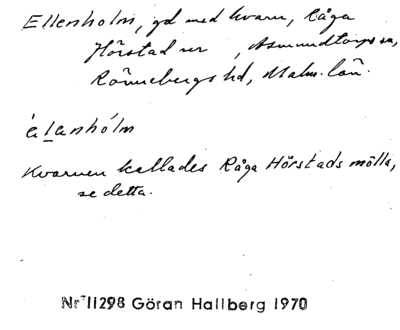 Ellenholm, gd med kvarn, Råga
Hörstad nr , Asmundtorps sn,
Rönnebergs hd, Malm. län.
élanhólm
Kvarnen kallades Råga Hörstads mölla,
se detta.
Nr 11298 Göran Hallberg 1970